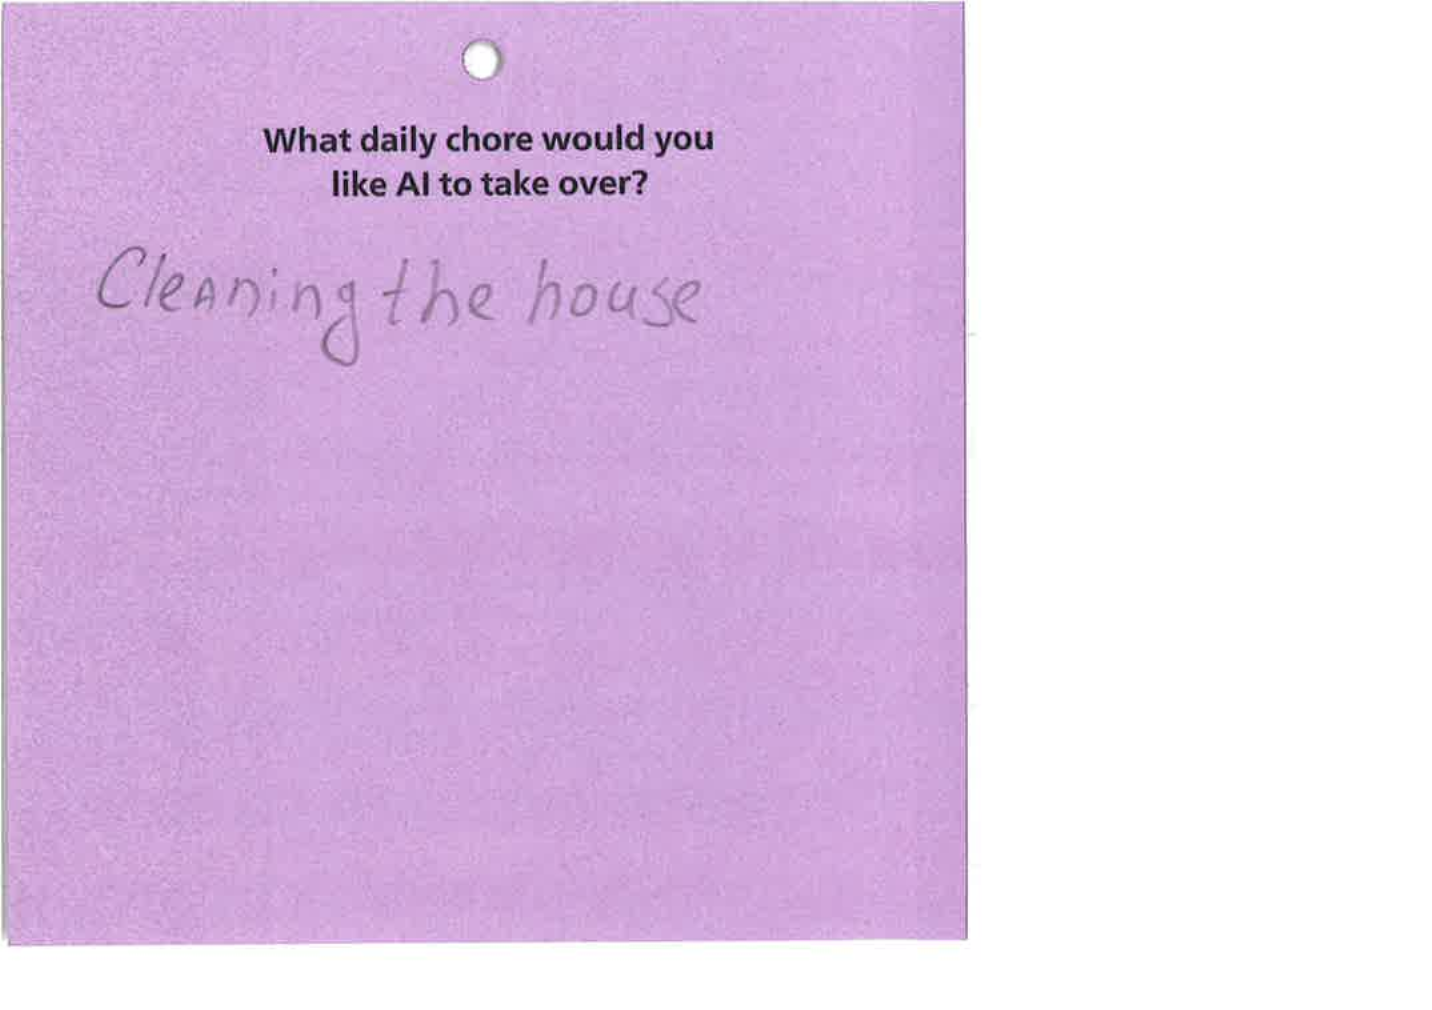 What daily chore would you
like AI to take over?
Cleaning the house